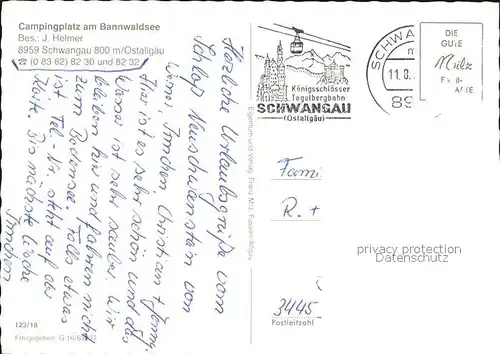 Campingplatz am Bannwaldsee
Bes.: J. Helmer
8959 Schwangau 800 m/Ostallgäu
☎ (0 83 62) 82 30 und 82 32
Herzliche Urlaubsgrüße vom
Schloß Neuschwanstein von
Werner, Irmchen Christian + Jenni.
Hier ist es sehr schön und das
Wasser ist sehr sauber. Wir
bleiben hier und fahren nicht
zum Bodensee. Falls etwas
ist Tel-Nr. steht auf der
Karte. Bis nächste Woche
Irmchen
123/18
Freigegeben: G 16/
Eigentum und Verlag Franz Milz, Füssen/Allgäu
Königsschlösser
Tegelbergbahn
SCHWANGAU
(Ostallgäu)
SCHWA
11.8.
89
DIE
GUTE
Milz
Fami
R. +
3445
Postleitzahl
privacy protection
Datenschutz